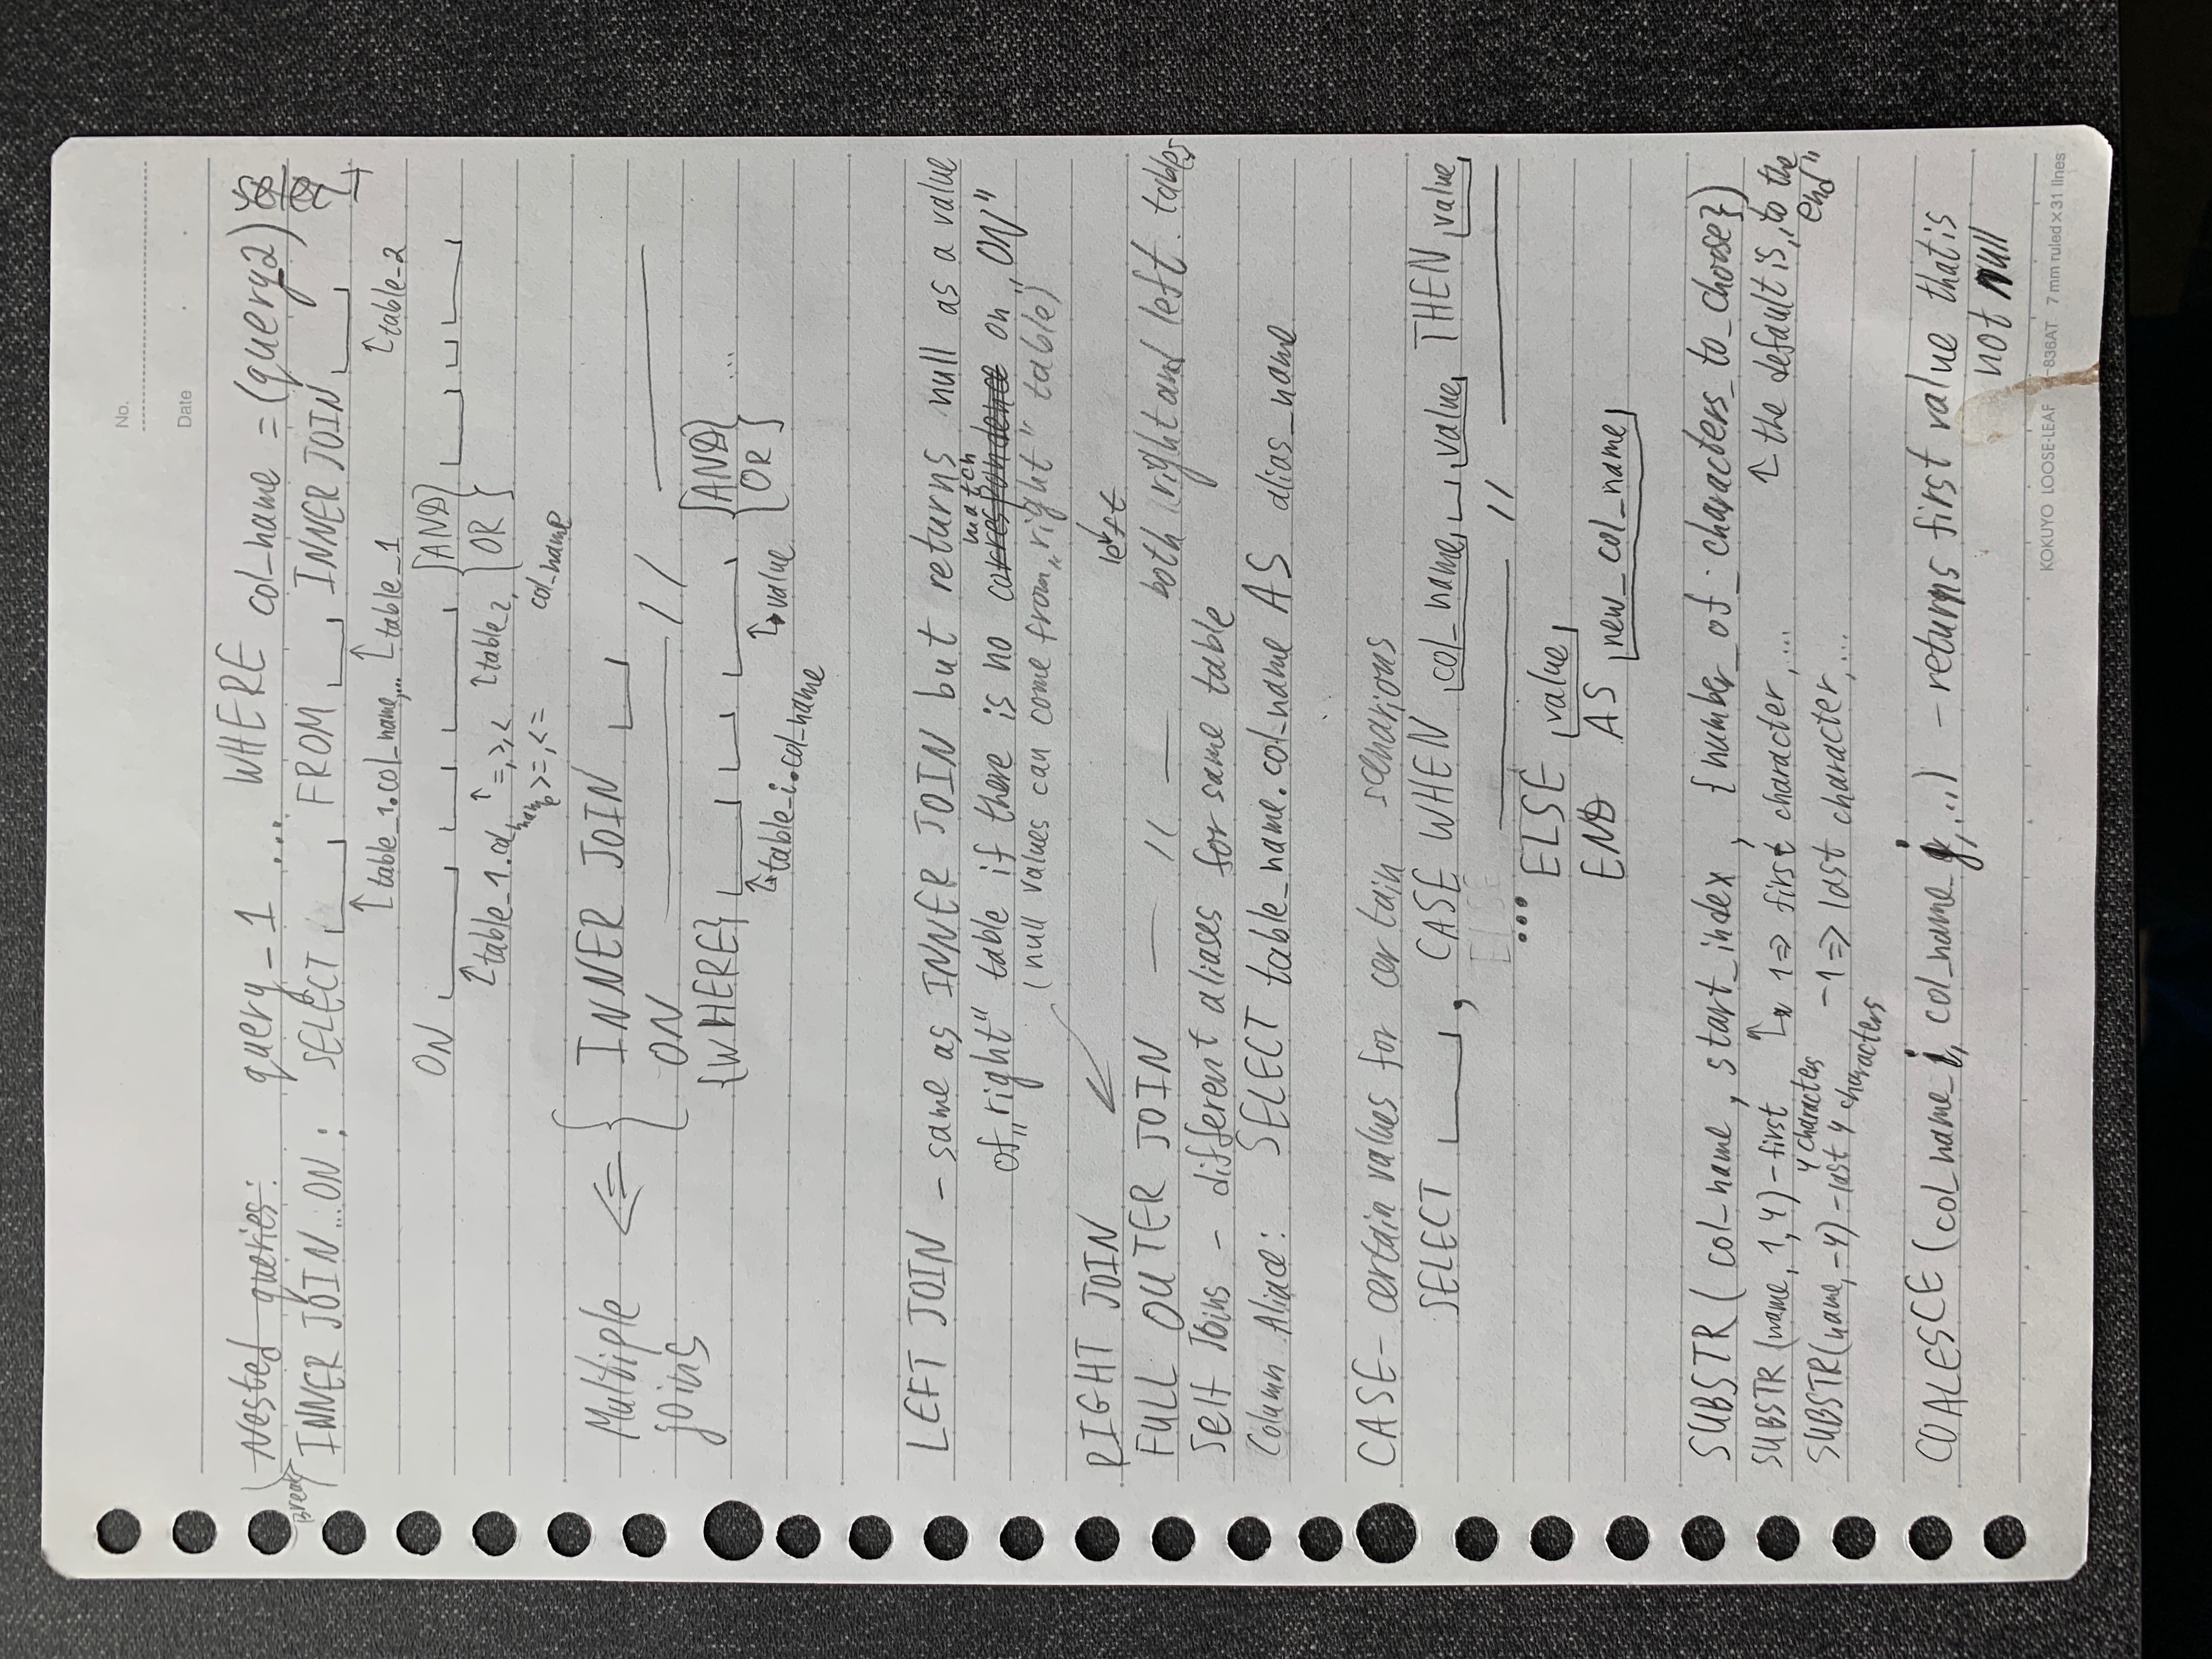 No.
Date
Nested queries: query_1 ... WHERE col_name = (query2)
Break
INNER JOIN ... ON : SELECT FROM INNER JOIN
table_1.col_name,... table_1 table_2
ON {AND
table_1.col_name =, >, < table_2. OR}
>=, <= col_name
Multiple <= { INNER JOIN
joins ON — // —
{WHERE} {AND
OR} ...
table_i.col_name value
LEFT JOIN - same as INNER JOIN but returns null as a value
match
of „right" table if there is no correspondence on „ON"
(null values can come from „right" table)
RIGHT JOIN left
FULL OUTER JOIN — // — both right and left. tables
Self Joins - different aliases for same table
Column Aliace: SELECT table_name.col_name AS alias_name
CASE - certain values for certain scenarious
SELECT , CASE WHEN col_name value THEN value
ELSE — // —
... ELSE value
END AS new_col_name
SUBSTR ( col_name , start_index , {number_of_characters_to_choose})
SUBSTR (name, 1, 4) - first 1 => first character, ... the default is „to the
4 characters end"
SUBSTR(name, -4) - last 4 characters -1 => last character, ...
COALESCE (col_name_i, col_name_j, ...) - returns first value that is
not null
KOKUYO LOOSE-LEAF -836AT 7 mm ruled×31 lines